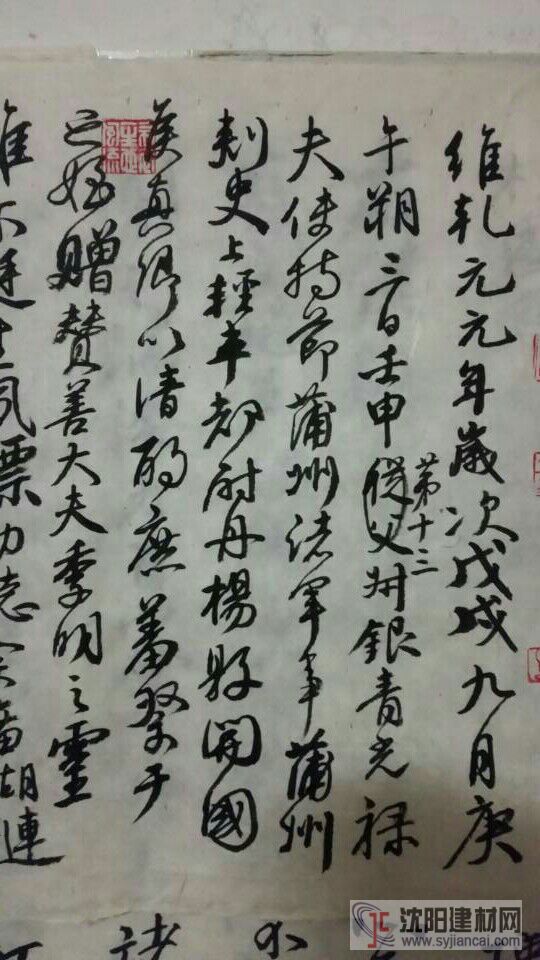 維乹元元年歲次戊戌九月庚
午朔三日壬申第十三從父叔銀青光祿
夫使持節蒲州諸軍事蒲州
刺史上輕車都尉丹楊縣開國
侯真卿以清酌庶羞祭于
亡姪贈贊善大夫季明之靈
惟尔挺生夙標幼德宗廟瑚連
沈阳建材网
www.syjiancai.com